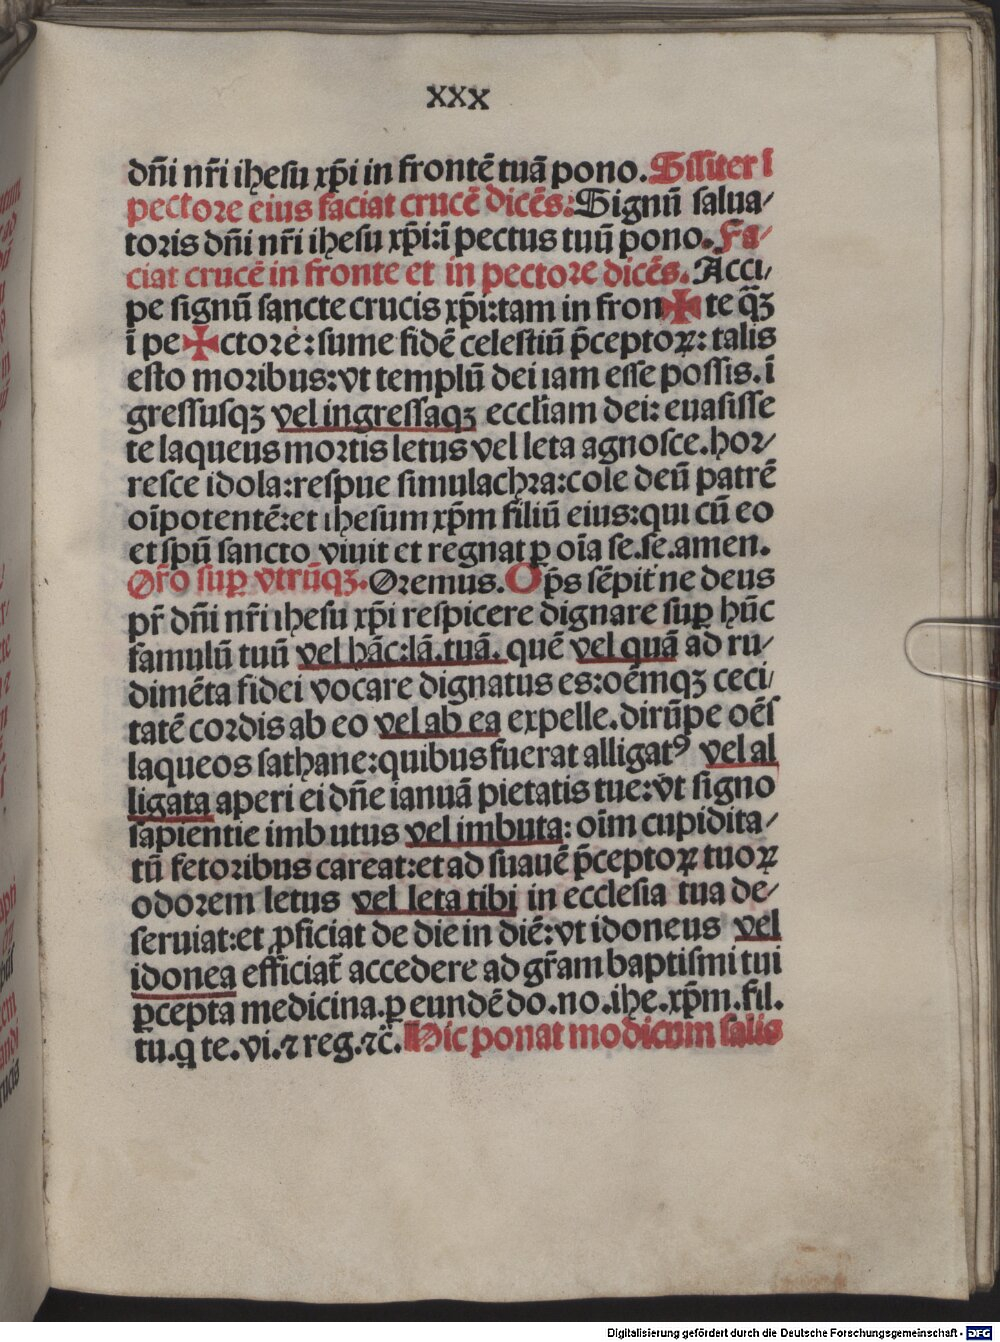 xxx
dñi nr̃i ihesu xp̃i in frontẽ tuã pono. Silĩter ĩ
pectore eius faciat crucẽ dicẽs. Signũ salua⸗
toris dñi nr̃i ihesu xp̃i: ĩ pectus tuũ pono. Fa⸗
ciat crucẽ in fronte et in pectore dicẽs. Acci⸗
pe signũ sancte crucis xp̃i: tam in fron✠te q̃ꝫ
ĩ pe✠ctore: sume fidẽ celestiũ p̃ceptoꝝ: talis
esto moribus: vt templũ dei iam esse possis. ĩ
gressusqꝫ vel ingressaqꝫ eccl̃iam dei: euasisse
te laqueus mortis letus vel leta agnosce. hor⸗
resce idola: respue simulachra: cole deũ patrẽ
oĩpotentẽ: et ihesum xp̃m filiũ eius: qui cũ eo
et sp̃ũ sancto viuit et regnat ꝑ oĩa se. se. amen.
Or̃o suꝑ vtrũqꝫ. Oremus. Op̃s sẽpit̃ne deus
pr̃ dñi nr̃i ihesu xp̃i respicere dignare suꝑ hũc
famulũ tuũ vel hãc: lã. tuã. quẽ vel quã ad ru⸗
dimẽta fidei vocare dignatus es: oẽmqꝫ ceci⸗
tatẽ cordis ab eo vel ab ea expelle. dirũpe oẽs
laqueos sathane: quibus fuerat alligatꝰ vel al
ligata aperi ei dñe ianuã pietatis tue: vt signo
sapientie imbutus vel imbuta: oĩm cupidita⸗
tũ fetoribus careat: et ad suauẽ p̃ceptoꝝ tuoꝝ
odorem letus vel leta tibi in ecclesia tua de⸗
seruiat: et ꝓficiat de die in diẽ: vt idoneus vel
idonea efficiat̃ accedere ad gr̃am baptismi tui
ꝑcepta medicina. ꝑ eundẽ do. no. ihe. xp̃m. fil.
tu. q te. vi. ⁊ reg. ⁊c̃. Hic ponat modicum salis
Digitalisierung gefördert durch die Deutsche Forschungsgemeinschaft - DFG